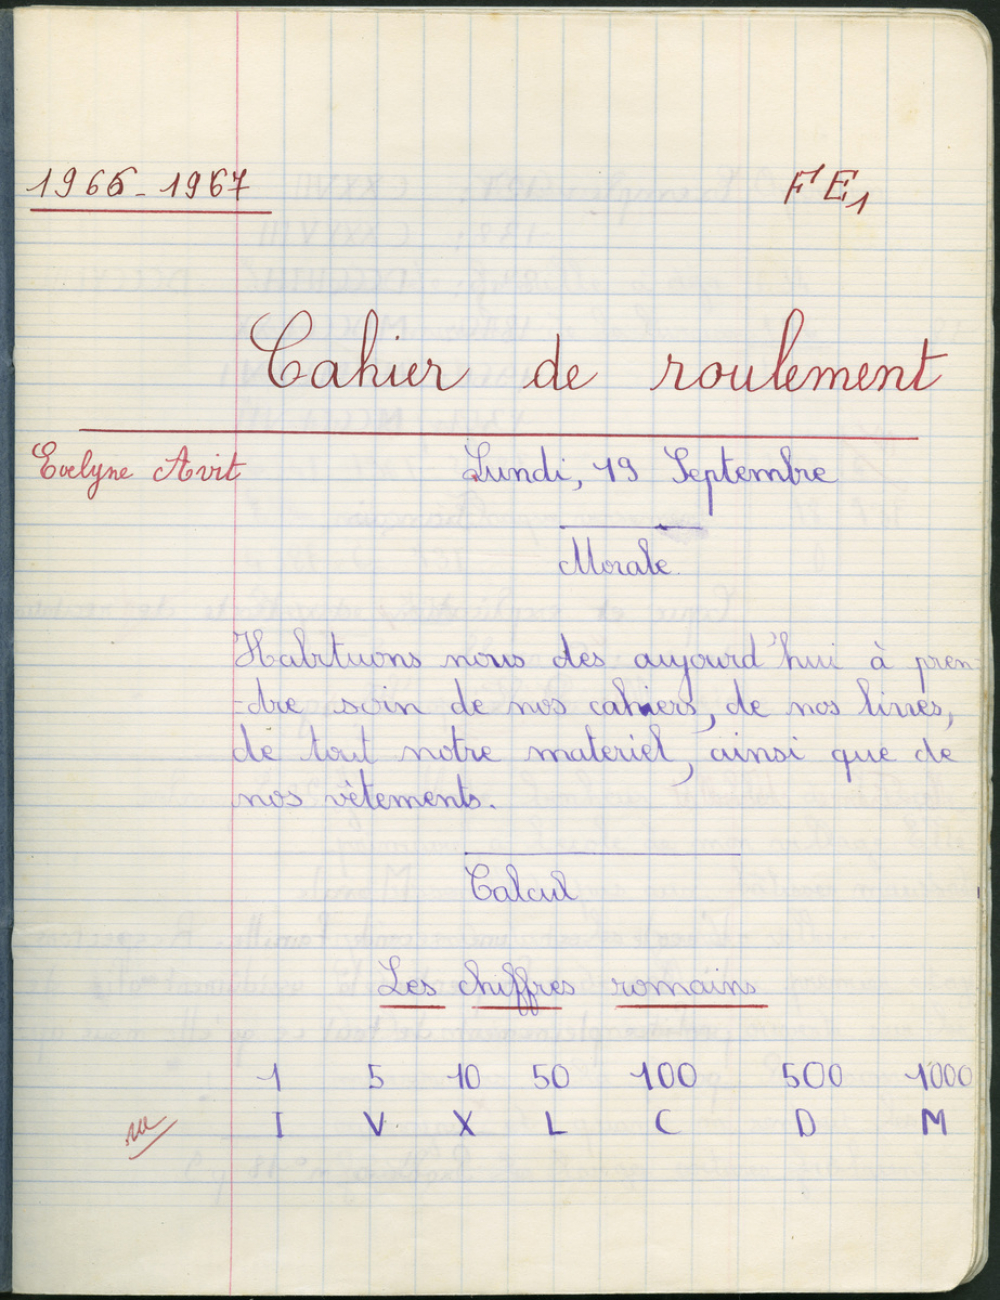 1966-1967 FE1
Cahier de roulement
Evelyne Avit Lundi, 19 Septembre
Morale
Habituons nous des aujourd'hui à pren-
-dre soin de nos cahiers, de nos livres,
de tout notre materiel, ainsi que de
nos vêtements.
Calcul
Les chiffres romains
1 5 10 50 100 500 1000
I V X L C D M
vu